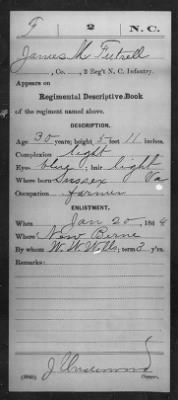 F 2 N. C.
James M Futrell
, Co. , 2 Reg't N. C. Infantry.
Appears on
Regimental Descriptive Book
of the regiment named above.
DESCRIPTION.
Age 30 years; height 5 feet 11 inches.
Complexion light
Eyes blue; hair light
Where born Sussex Va
Occupation farmer
ENLISTMENT.
When Jan 20, 1864
Where New Berne
By whom W. W. Wells; term 3 y'rs.
Remarks:
J Underwood
Copyist.